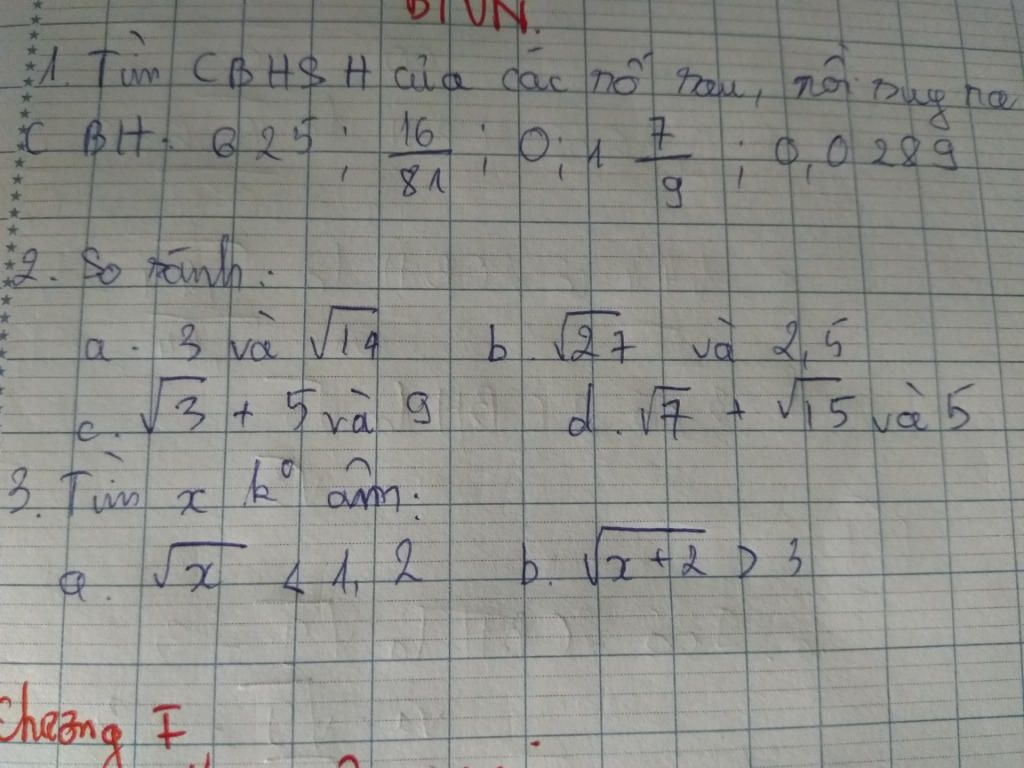 BTVN.
1. Tìm CBHSH của các số sau, rồi suy ra
CBH: 625; 16/81; 0; 1 7/9; 0,0289
2. So sánh:
a. 3 và √14 b. √27 và 2,5
c. √3 + 5 và 9 d. √7 + √15 và 5
3. Tìm x k° âm:
a. √x < 1,2 b. √x+2 > 3
Chương I